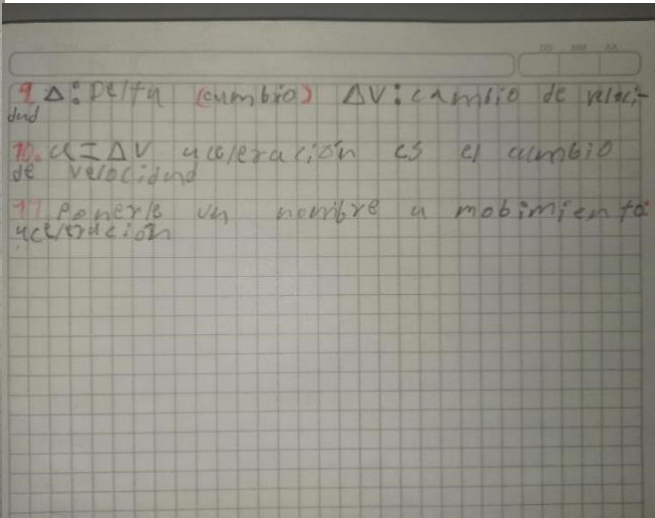 DD MM AA
9. Δ: Delta (cambio) ΔV: cambio de veloci-
dad
10. a = ΔV aceleración es el cambio
de velocidad
11 Ponerle un nombre a mobimiento:
aceleracion